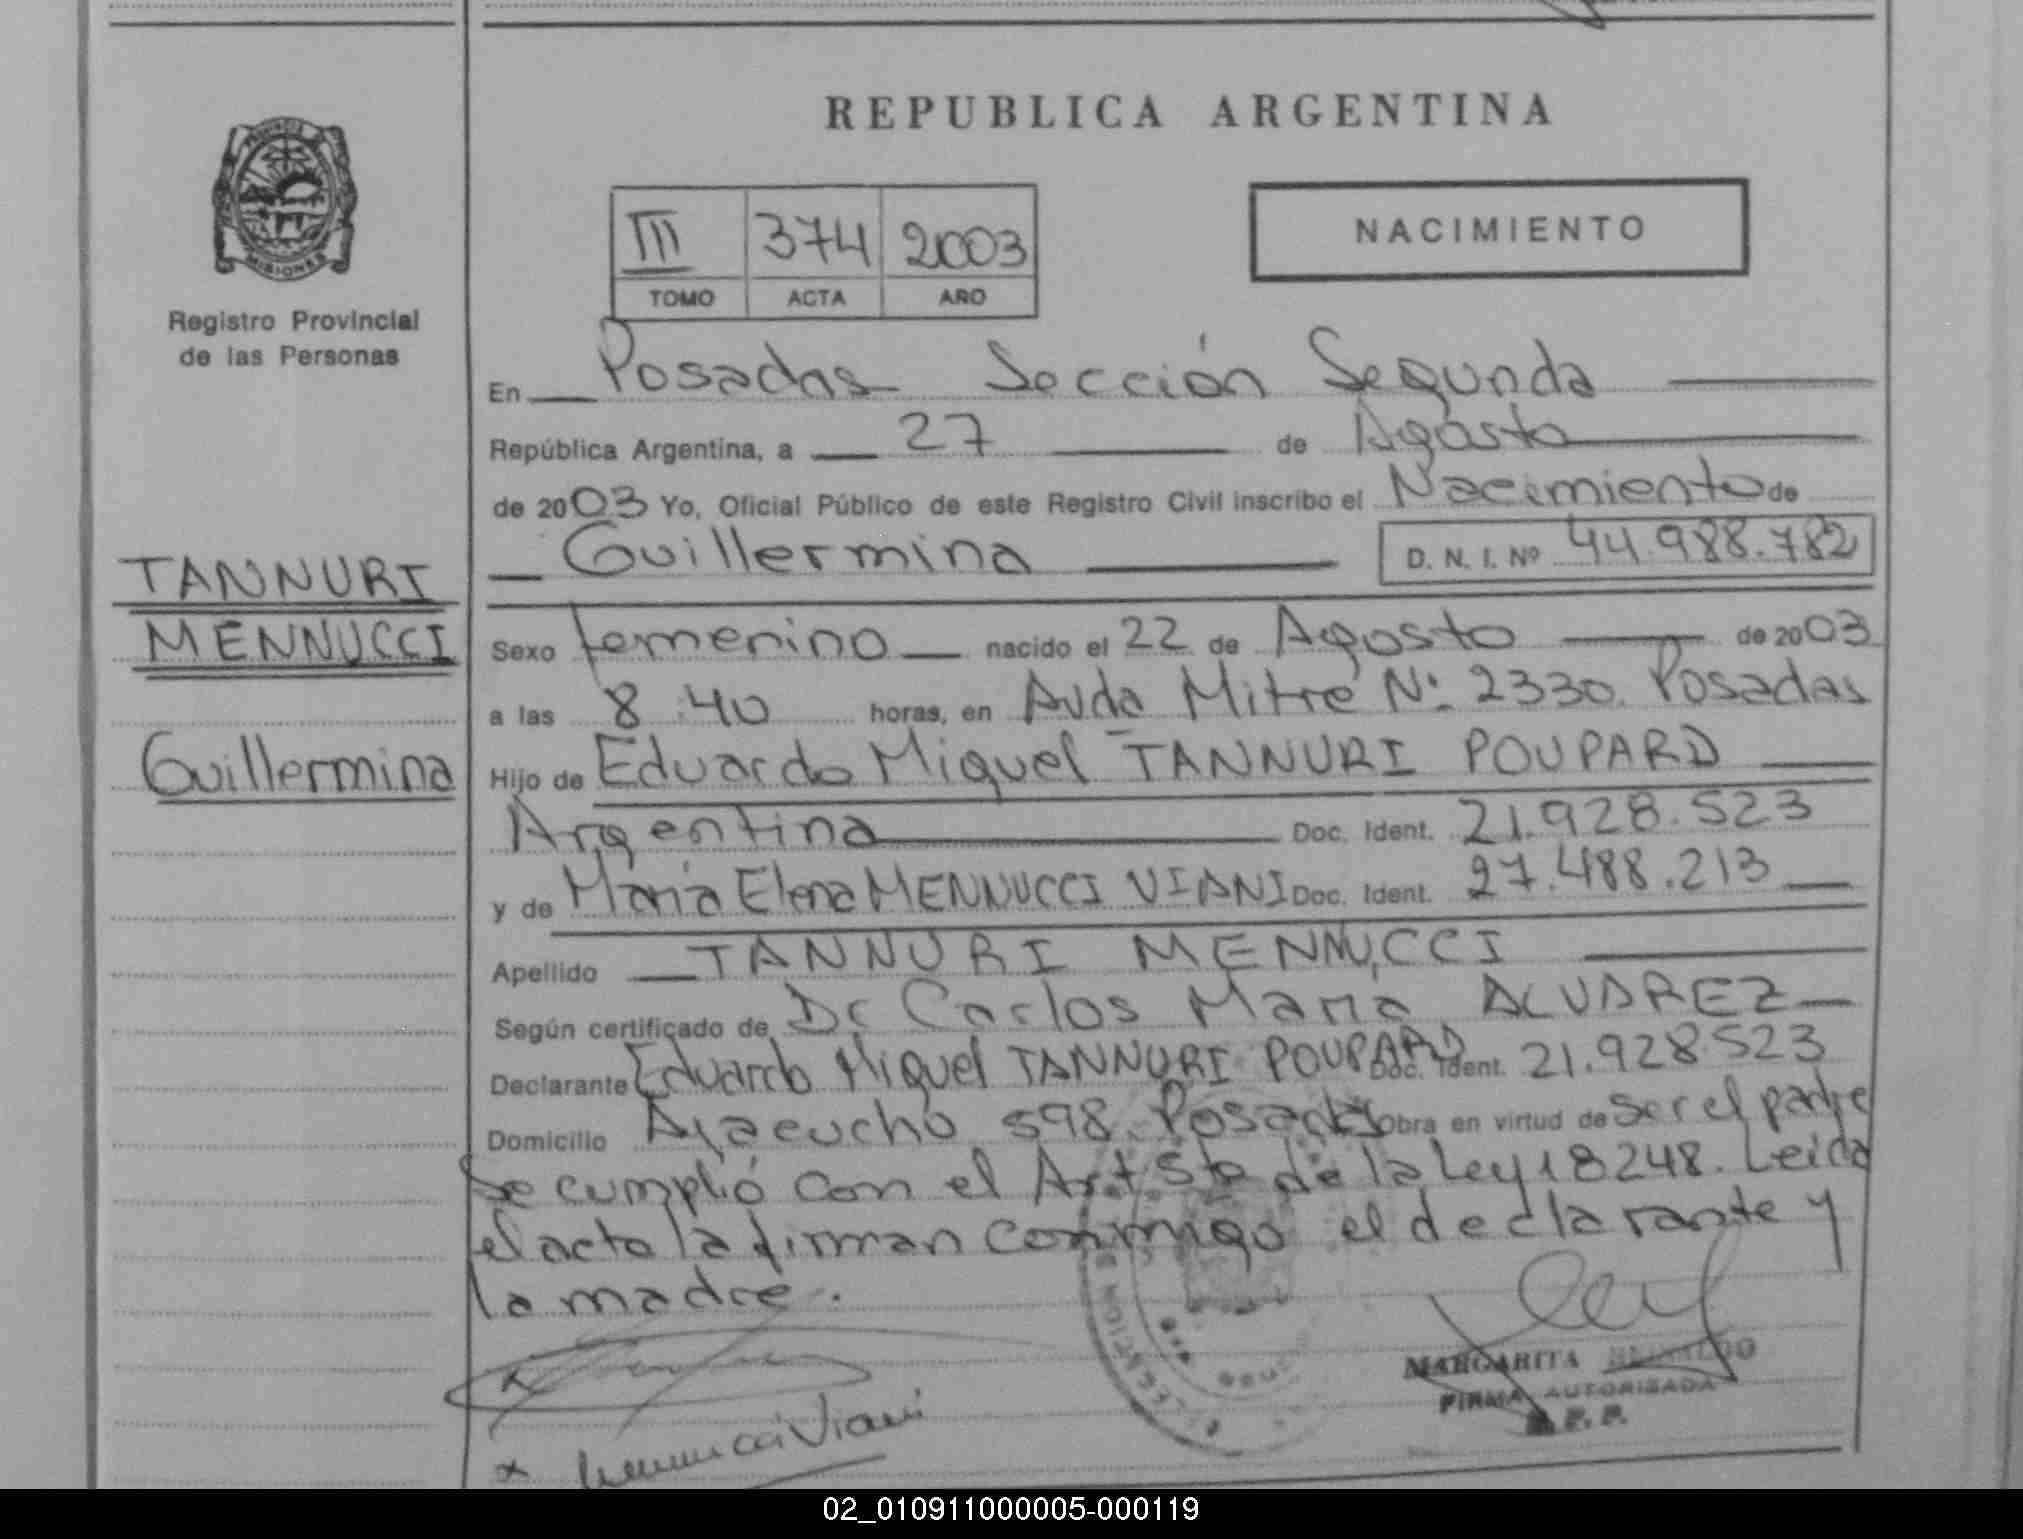 REPUBLICA ARGENTINA
PROVINCIA
MISIONES
Registro Provincial
de las Personas
III 374 2003
TOMO ACTA AÑO
NACIMIENTO
En Posadas Sección Segunda
República Argentina, a 27 de Agosto
de 2003 Yo, Oficial Público de este Registro Civil inscribo el Nacimiento de
Guillermina D. N. I. Nº 44.988.782
TANNURI
MENNUCCI
Guillermina
Sexo femenino nacido el 22 de Agosto de 2003
a las 8:40 horas, en Avda Mitre Nº 2330. Posadas
Hijo de Eduardo Miguel TANNURI POUPARD
Argentina Doc. Ident. 21.928.523
y de María Elena MENNUCCI VIANI Doc. Ident. 27.488.213
Apellido TANNURI MENNUCCI
Según certificado de Dr Carlos María ALVAREZ
Declarante Eduardo Miguel TANNURI POUPARD Doc. Ident. 21.928.523
Domicilio Ayacucho 598. Posadas Obra en virtud de ser el padre
Se cumplió con el Art 5to de la Ley 18248. Leida
el acta la firman conmigo el declarante y
la madre.
Mennucci Viani
MARGARITA
FIRMA AUTORIZADA
R. P. P.
02_010911000005-000119